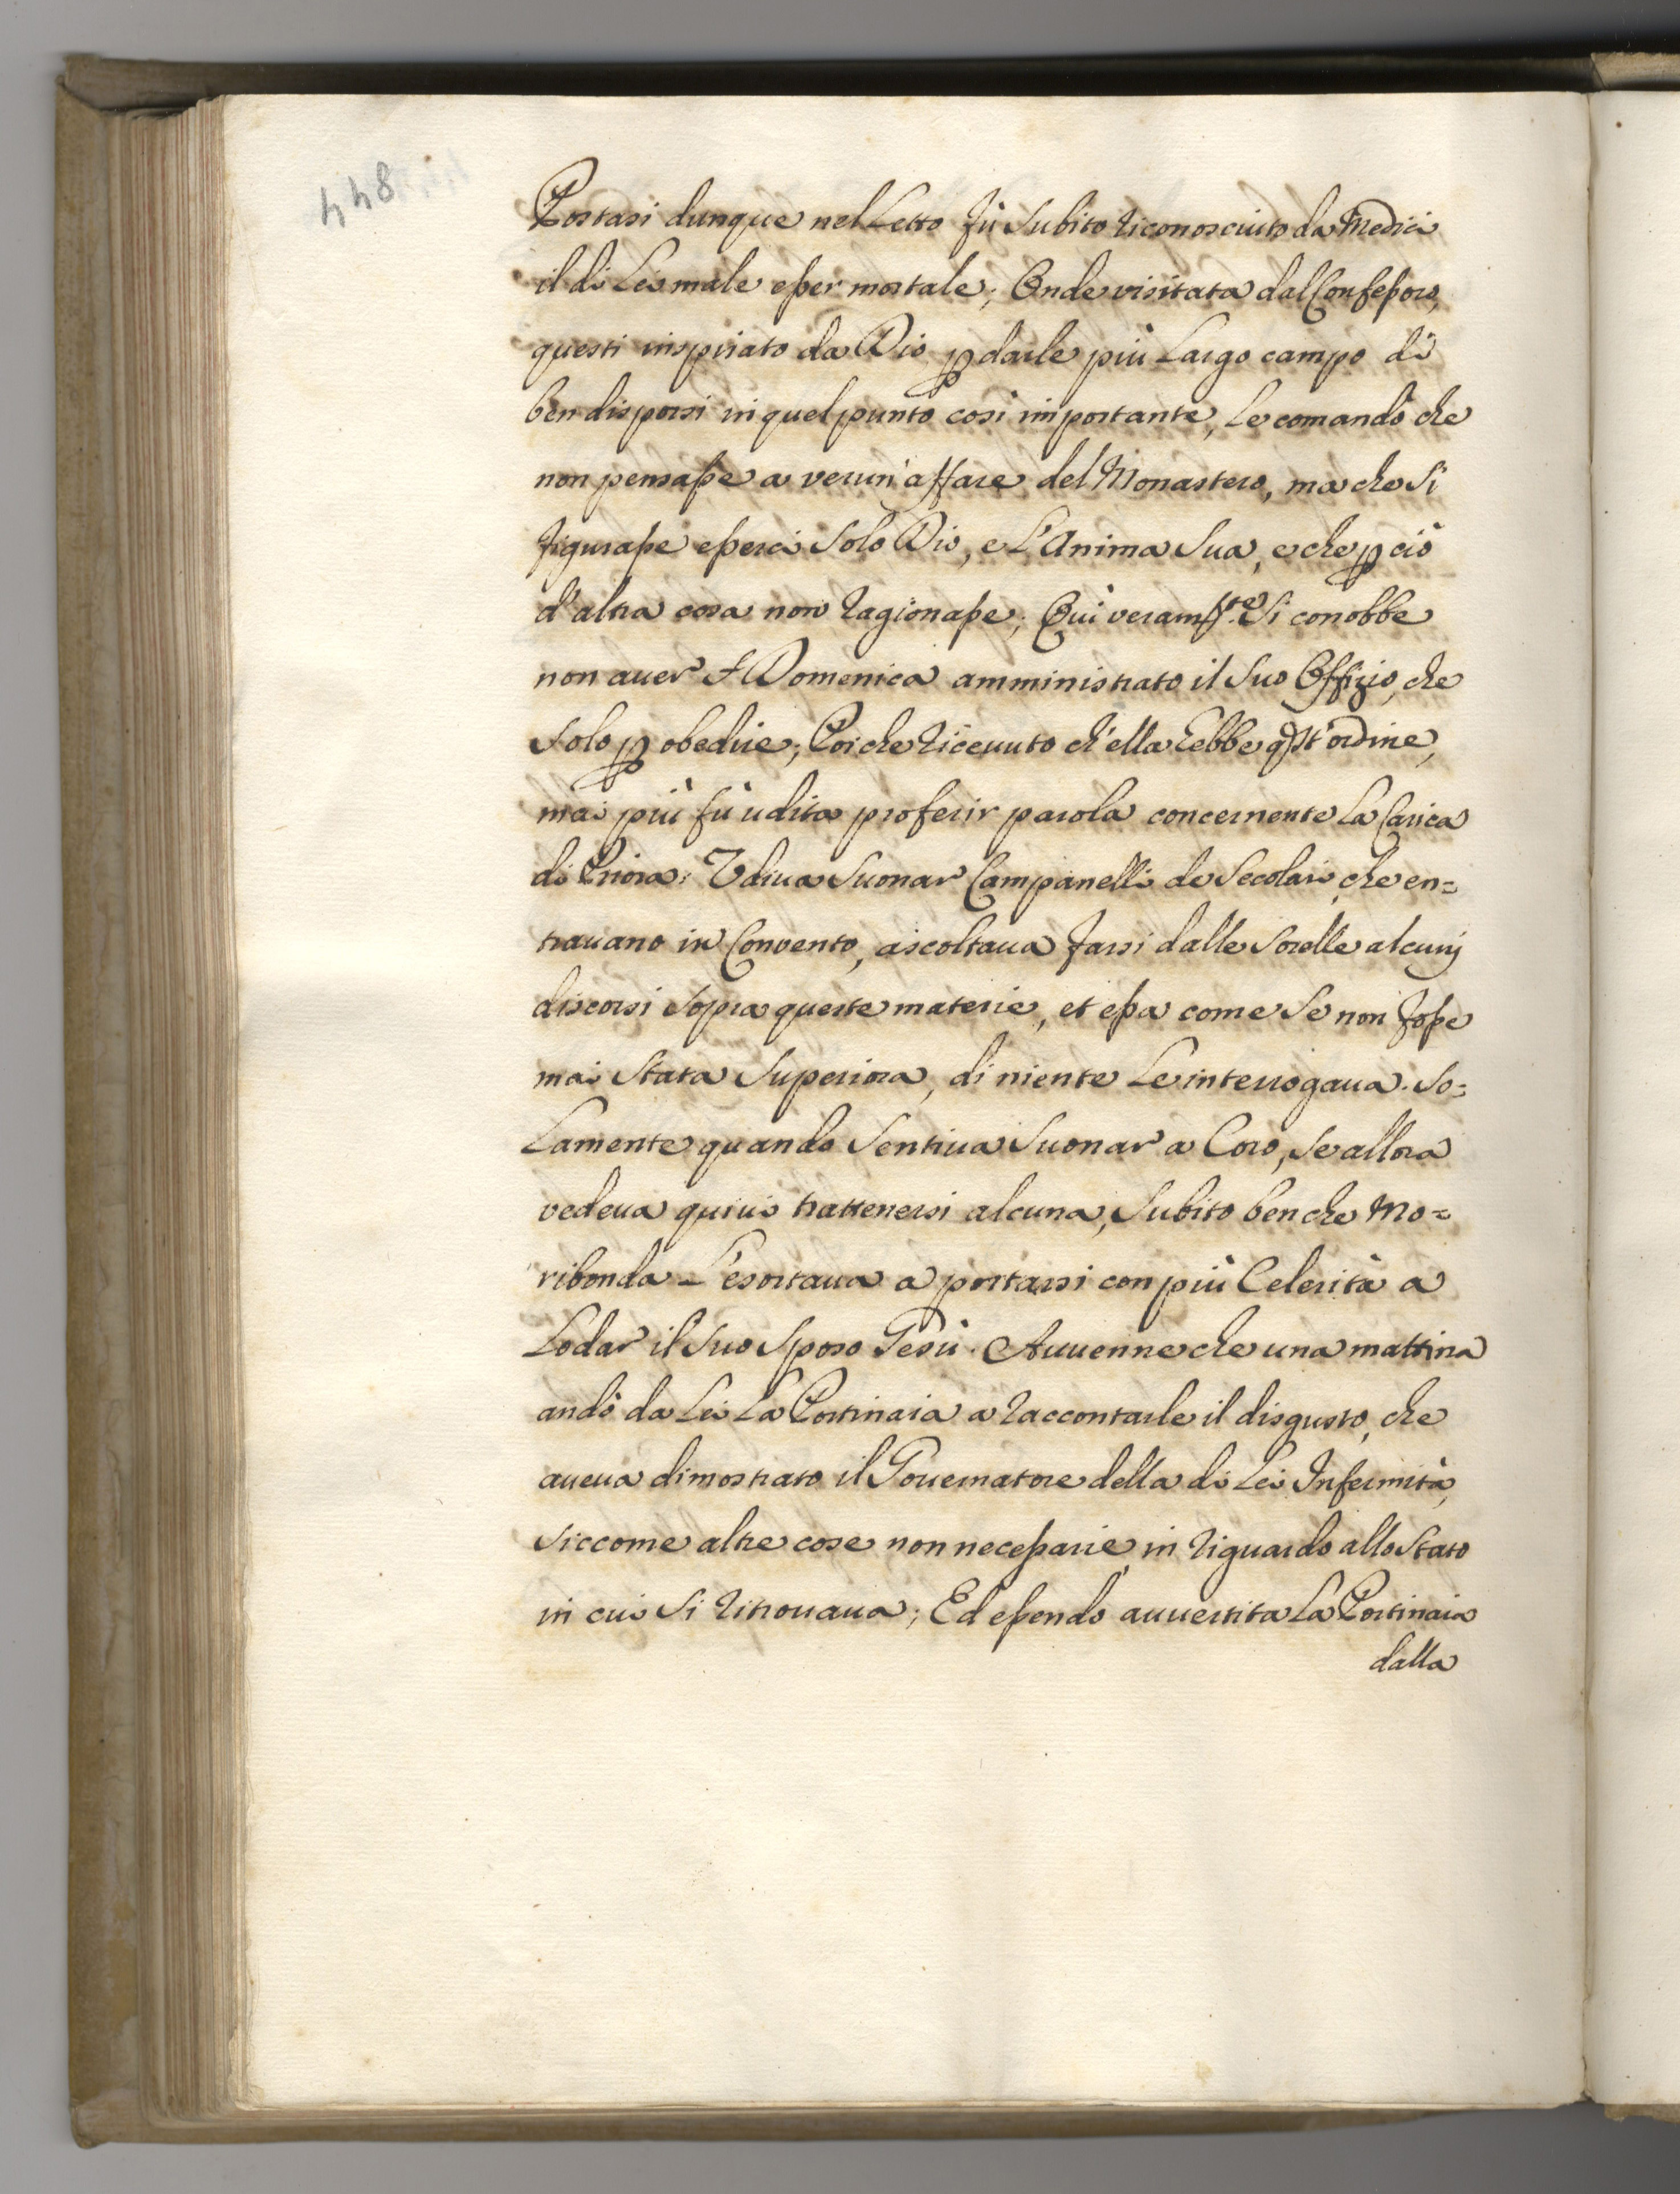 448
Postasi dunque nel Letto fù subito riconosciuto da Medici
il di Lei male esser mortale; Onde visitata dal Confessore,
questi inspirato da Dio p darle più Largo campo di
ben disporsi in quel punto così importante, Le comandò che
non pensasse a verun'affare del Monastero, ma che si
figurasse esserci solo Dio, e L'Anima sua, e che p ciò
d'altra cosa non ragionasse; Qui veramte. si conobbe
non auer S Domenica amministrato il suo Offizio, che
solo p obedire; Poiche riceuuto ch'ella hebbe qst ordine,
mai più fù udita proferir parola concernente La Carica
di Priora: Vdiua suonar Campanelli de Secolari che en=
trauano in Convento, ascoltaua farsi dalle Sorelle alcunj
discorsi sopra queste materie, et essa come se non fosse
mai stata Superiora, di niente Le interrogaua. So=
Lamente quando sentiua suonar a Coro, se allora
vedeua quiui trattenersi alcuna, subito benche Mo=
ribonda L'esortaua a portarsi con più Celerità a
Lodar il suo Sposo Gesù. Auuenne che una mattina
andò da Lei La Portinaia a raccontarle il disgusto, che
aueua dimostrato il Gouernatore della di Lei Infermità,
siccome altre cose non necessarie in riguardo allo stato
in cui si ritrouaua; Ed essendo auuertita La Portinaia
dalla